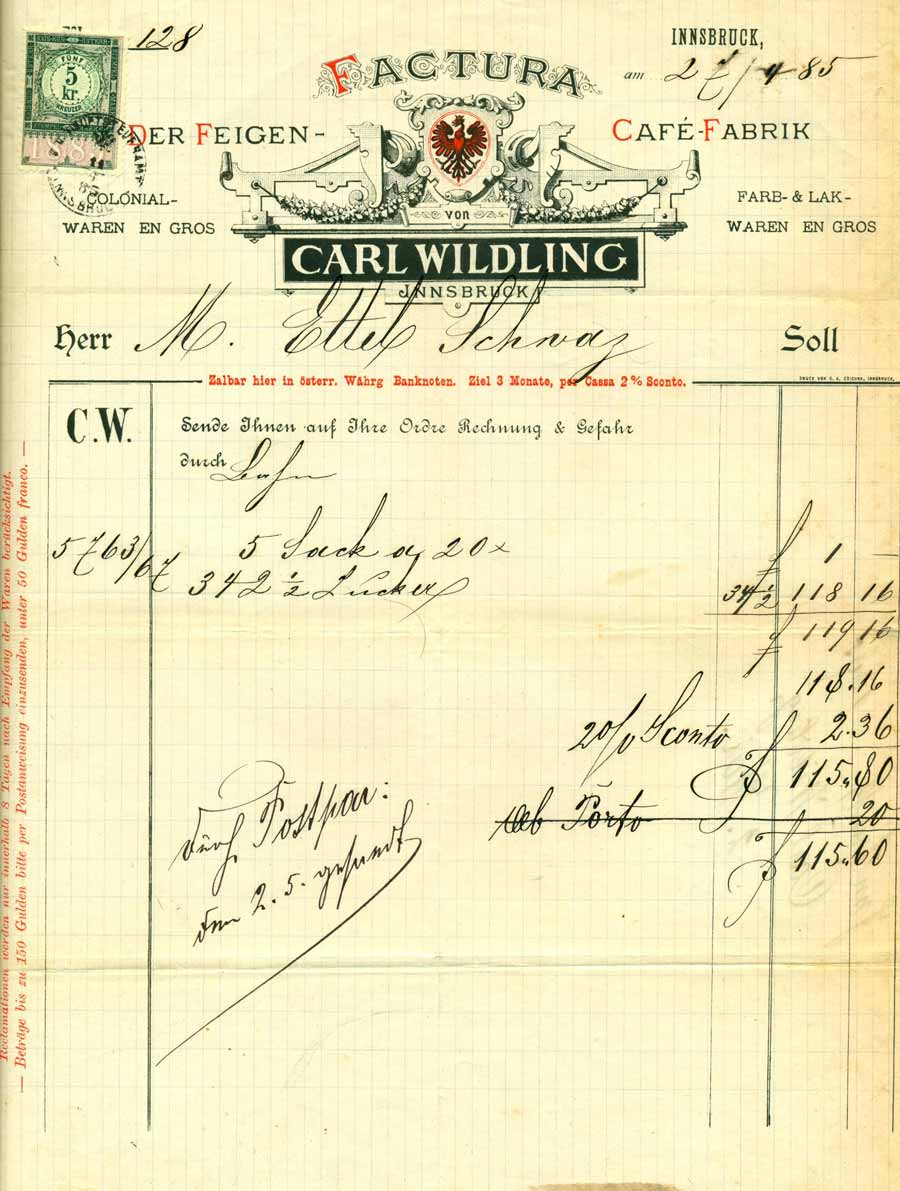 128
INNSBRUCK,
am 27/4 85
FÜNF
5
kr.
KREUZER
FACTURA
DER FEIGEN-
CAFÉ-FABRIK
COLONIAL-
WAREN EN GROS
FARB- & LAK-
WAREN EN GROS
von
CARL WILDLING
INNSBRUCK
Herr M. Ettel Schwaz Soll
Zalbar hier in österr. Währg Banknoten. Ziel 3 Monate, per Cassa 2% Sconto.
C.W.
Sende Ihnen auf Ihre Ordre Rechnung & Gefahr
durch Bahn
5763/67 5 Sack a 20x f 1 —
342 ½ Zucker 34½ 118 16
f 119 16
118.16
2% Sconto 2.36
f 115.80
ab Porto 20
f 115.60
durch Postspar:
den 2.5. gesandt
Reclamationen werden nur innerhalb 8 Tagen nach Empfang der Waren berücksichtigt.
— Beträge bis zu 150 Gulden bitte per Postanweisung einzusenden, unter 50 Gulden franco. —